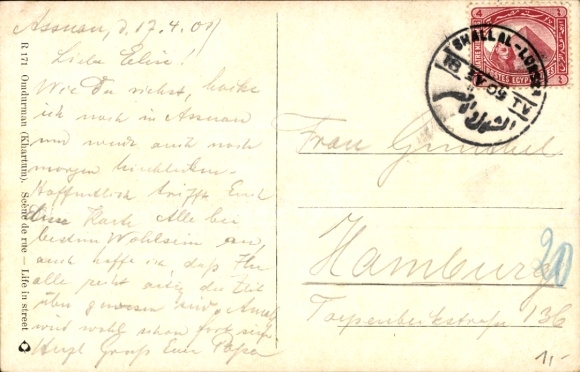 Assuan, d 17.4.09
Liebe Elsie!
Wie Du siehst,
ich noch in Assuan
und auch noch
morgen hierbleiben.
Hoffentlich trifft Euch
Karte Alle bei
bestem Wohlsein an,
auch hoffe ich, daß Ihr
alle recht artig die Zeit
über gewesen seid.
wird wohl schon fort sein
Herzl Gruss Euer Papa
R 171 Omdurman (Khartum). Scène de rue — Life in street
SHALLAL-LUXOR
POSTES EGYPTIENNES
Frau
Hamburg
20
136
1,-